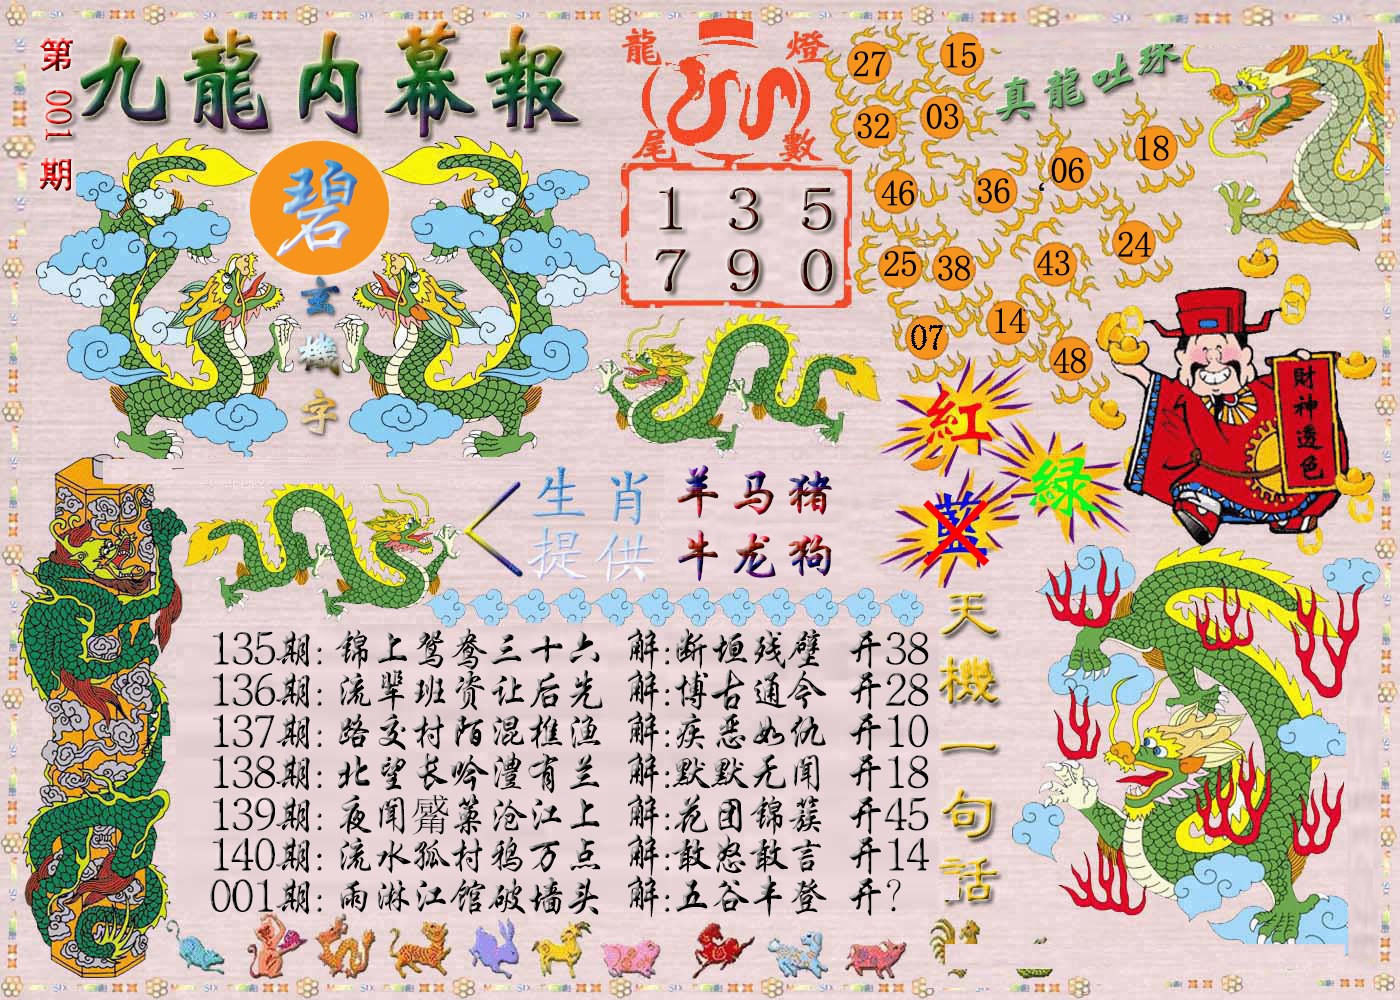 第001期
九龍内幕報
碧
玄機字
龍燈尾數
1 3 5
7 9 0
真龍吐珠
27 15
32 03
46 36 06 18
25 38 43 24
07 14 48
紅
綠
藍
財神透色
生肖提供
羊马猪
牛龙狗
135期: 锦上鸳鸯三十六 解:断垣残壁 开38
136期: 流辈班资让后先 解:博古通今 开28
137期: 路交村陌混樵渔 解:疾恶如仇 开10
138期: 北望长吟澧有兰 解:默默无闻 开18
139期: 夜闻觱篥沧江上 解:花团锦簇 开45
140期: 流水孤村鸦万点 解:敢怒敢言 开14
001期: 雨淋江馆破墙头 解:五谷丰登 开?
天機一句話